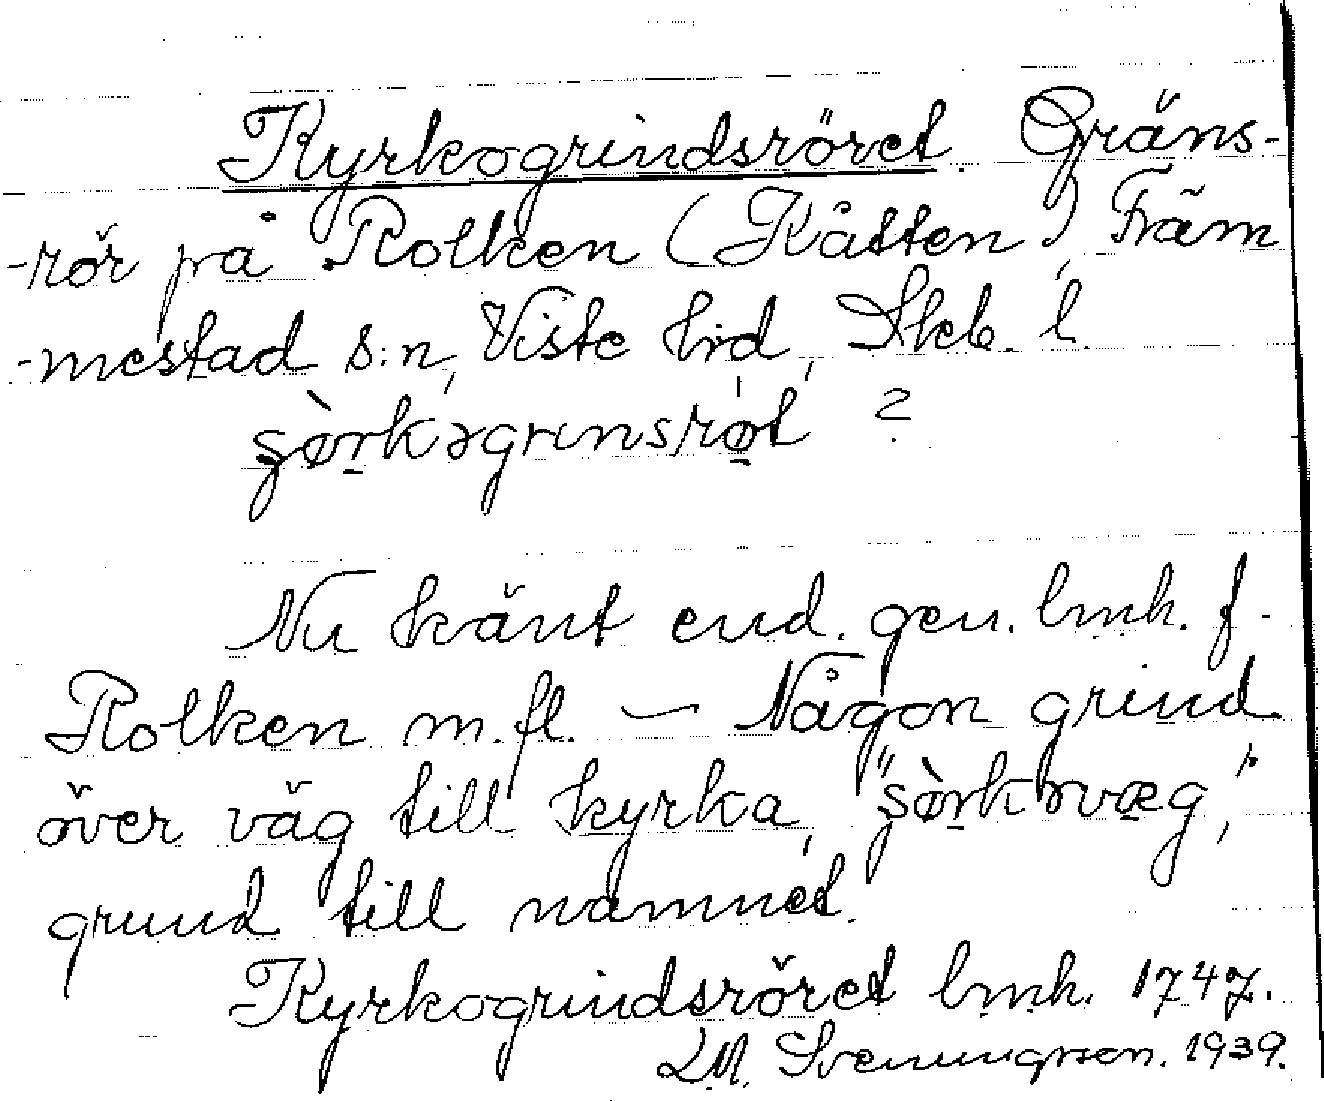 Kyrkogrindsröret Gräns-
-rör på Rolken (Kåtten), Främ
-mestad s:n, Viste hd, Skab. l.
şø̀rkəgrɩnsrøt ?
Nu känt end. gen. lmh. f.
Rolken m.fl. — Någon grind
över väg till kyrka, "şø̀rkəvæg",
grund till namnet.
Kyrkogrindsröret lmh. 1747.
LM. Svenungsson. 1939.